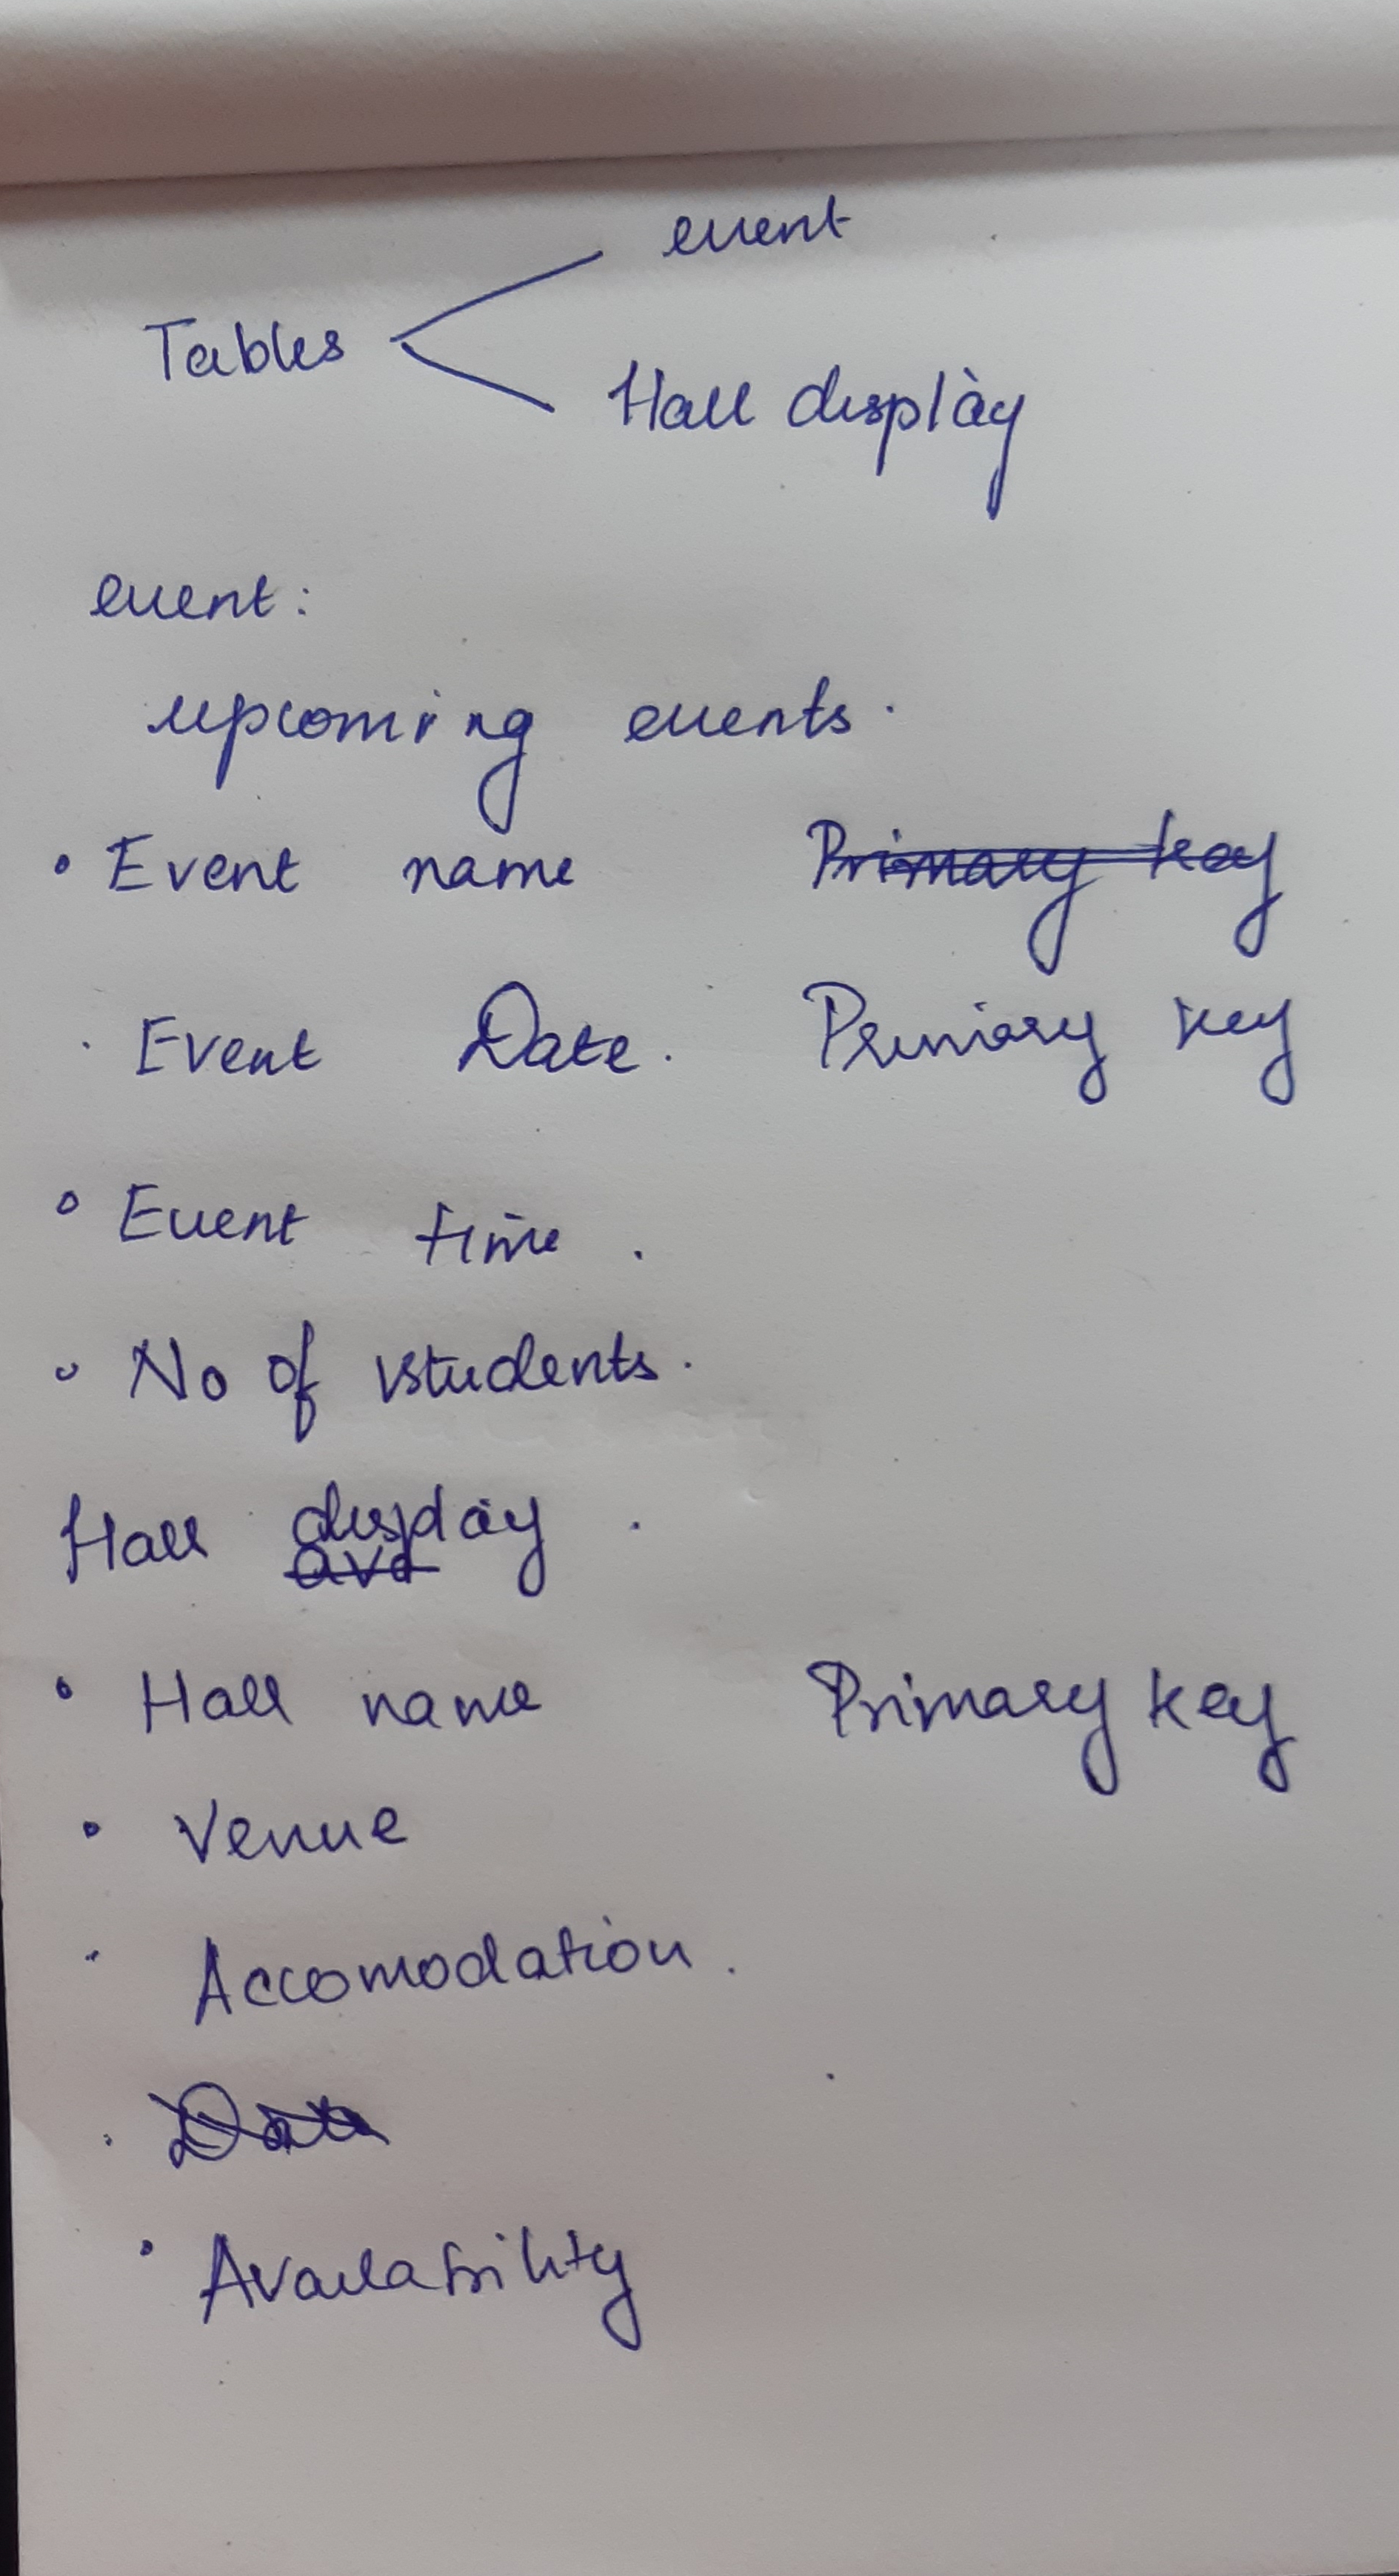 event
Tables
Hall display
event:
upcoming events.
• Event name Primary key
• Event Date. Primary key
• Event time.
• No of students.
Hall display.
ava
• Hall name Primary key
• Venue
• Accomodation.
• Date
• Availability